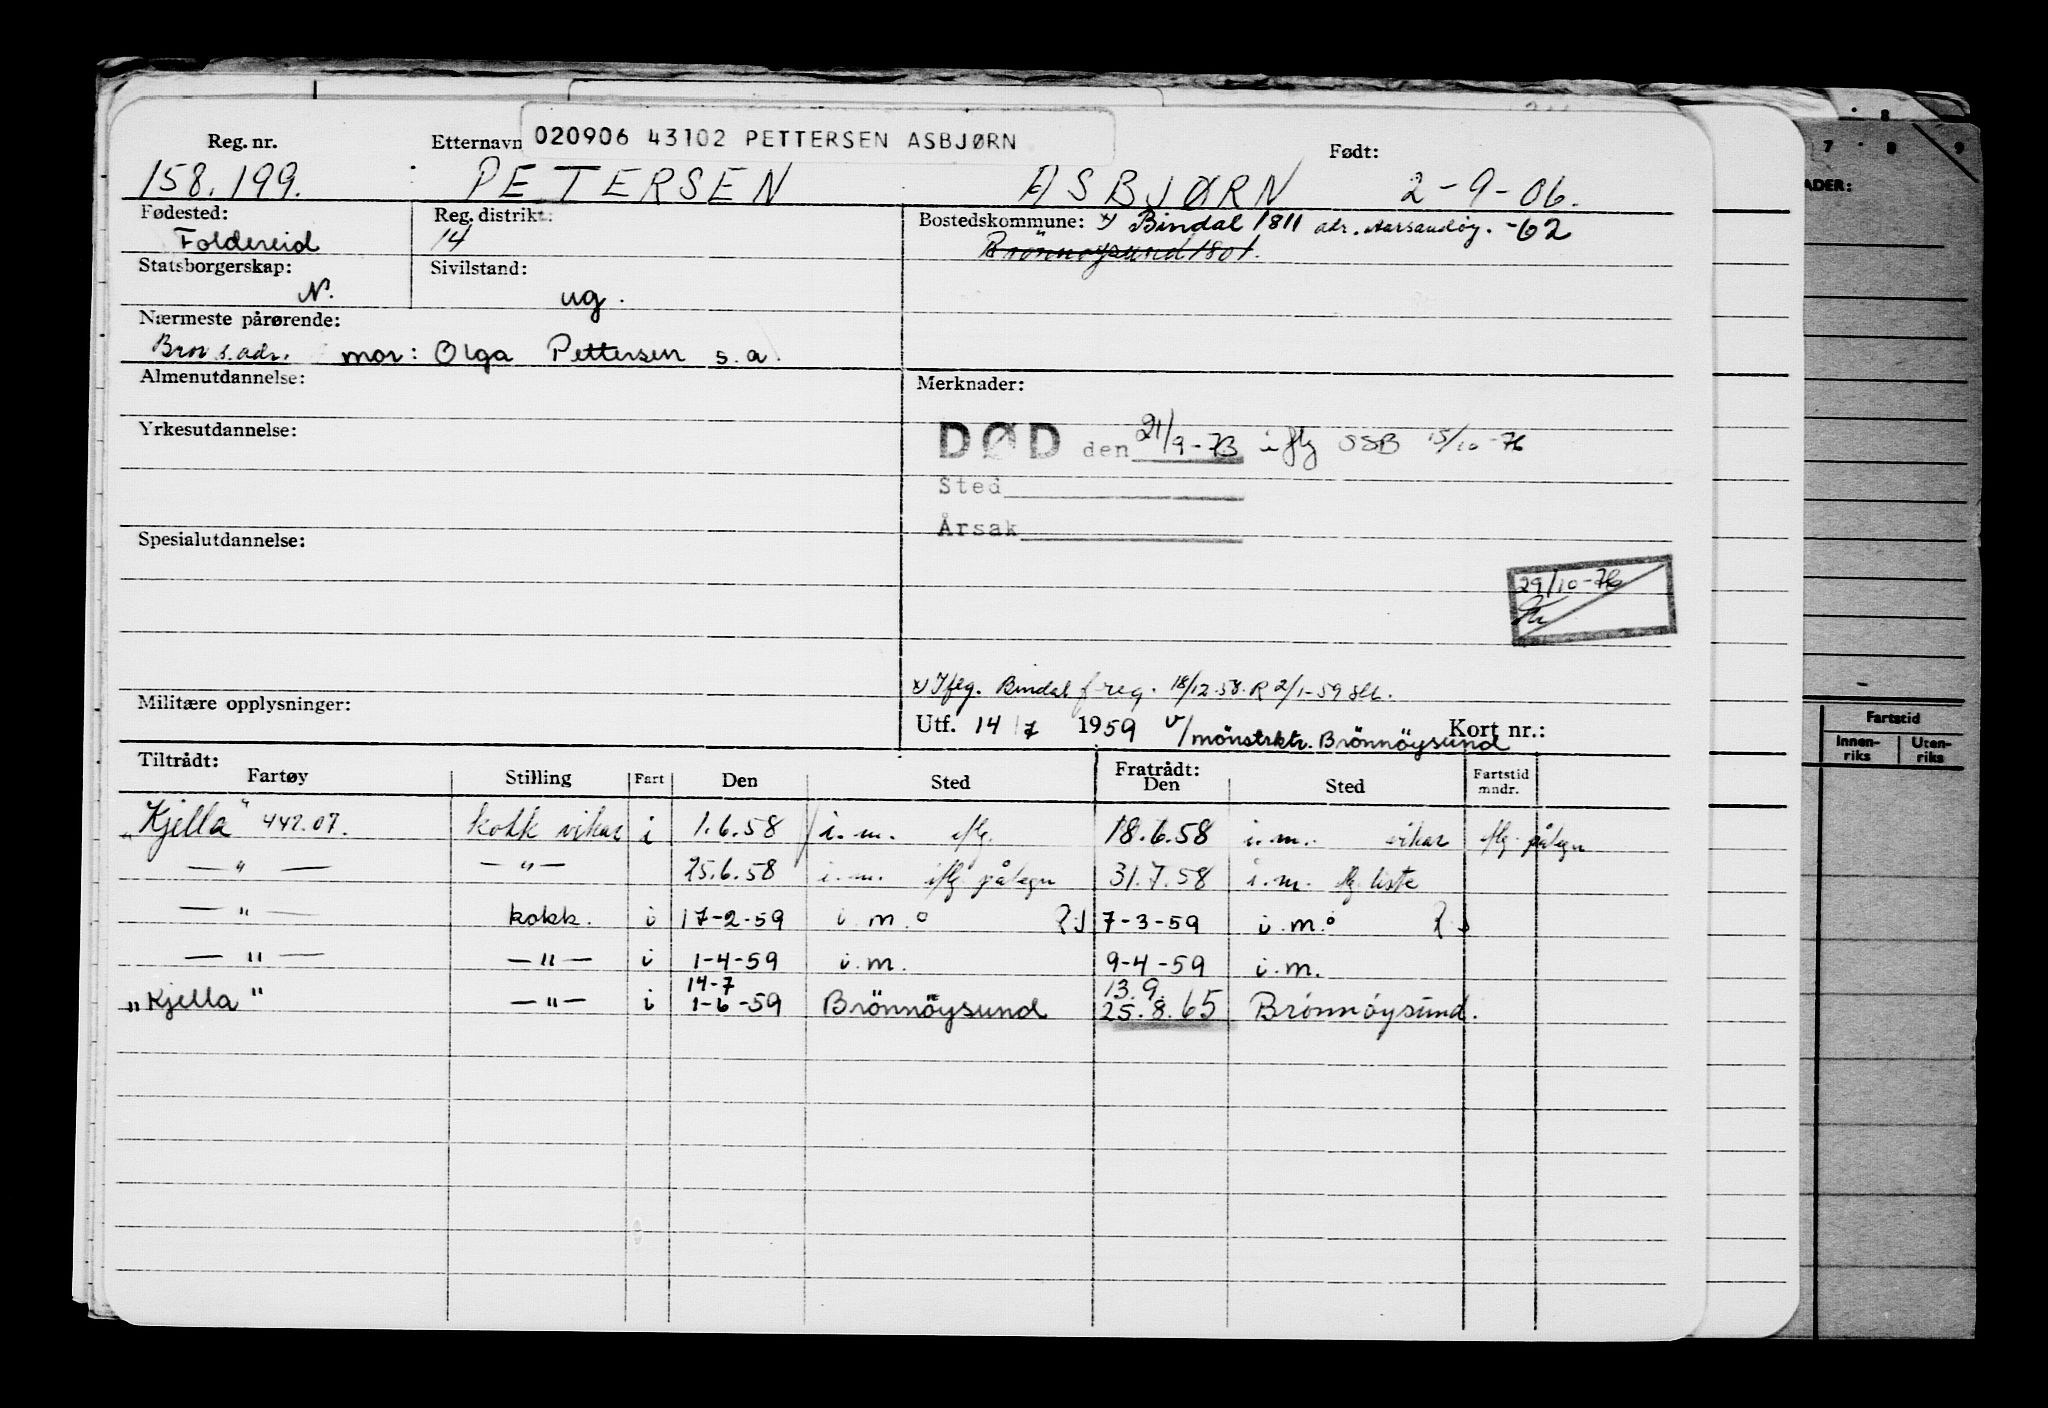 Reg. nr. Etternavn 020906 43102 PETTERSEN ASBJØRN Født:
158.199. PETERSEN ASBJØRN 2-9-06.
Fødested: Reg. distrikt: Bostedskommune: x) Bindal 1811 adr. Aarsandøy. -62
Foldereid 14 Brönnøysund 1801.
Statsborgerskap: Sivilstand:
N. ug.
Nærmeste pårørende:
Bror s. adr. mor: Olga Pettersen s.a.
Almenutdannelse: Merknader:
Yrkesutdannelse: DØD den 21/9-73 iflg SSB 15/10-76
Sted
Årsak
Spesialutdannelse:
29/10-76
x) Iflg. Bindal f reg. 18/12.58. R 2/1-59
Militære opplysninger:
Utf. 14/7 1959 v/mönstrktr. Brönnöysund Kort nr.:
Tiltrådt: Fratrådt:
Fartøy Stilling Fart Den Sted Den Sted Fartstid mndr.
"Kjella" 442.07. kokk vikar i 1.6.58 i.m. iflg. 18.6.58 i.m. vikar iflg påtegn
—"— —"— 25.6.58 i.m. iflg påtegn 31.7.58 i.m. iflg. liste
—"— kokk. i 17-2-59 i.m. 7-3-59 i.m.
—"— —"— i 1-4-59 i.m. 9-4-59 i.m.
14-7 13.9.
"Kjella" —"— i 1-6-59 Brönnöysund 25.8.65 Brönnöysund.
7 8 9
ADER:
Fartstid
Innen-riks Uten-riks